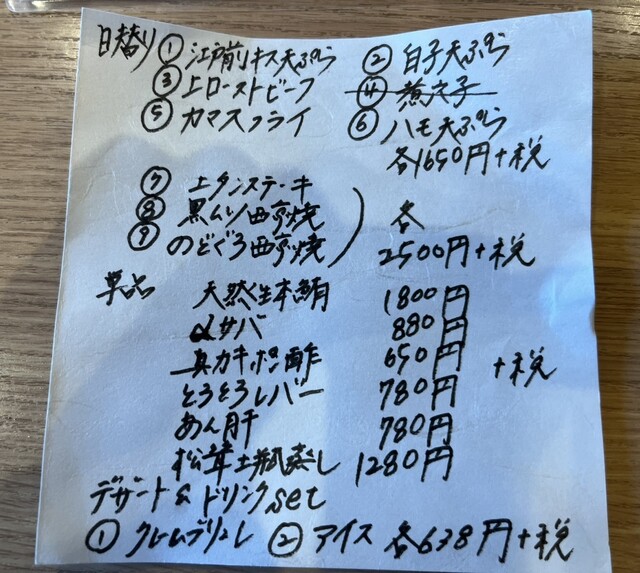 日替り ① 江戸前キス天ぷら ② 白子天ぷら
③ 上ローストビーフ ④ 煮穴子
⑤ カマスフライ ⑥ ハモ天ぷら
各1650円+税
⑦ 上タンステーキ
⑧ 黒ムツ西京焼 各
⑨ のどぐろ西京焼 2500円+税
単品 天然生本鮪 1800円
〆サバ 880円
真カキポン酢 650円 +税
とろとろレバー 780円
あん肝 780円
松茸土瓶蒸し 1280円
デザート&ドリンクset
① クレームブリュレ ② アイス 各638円+税